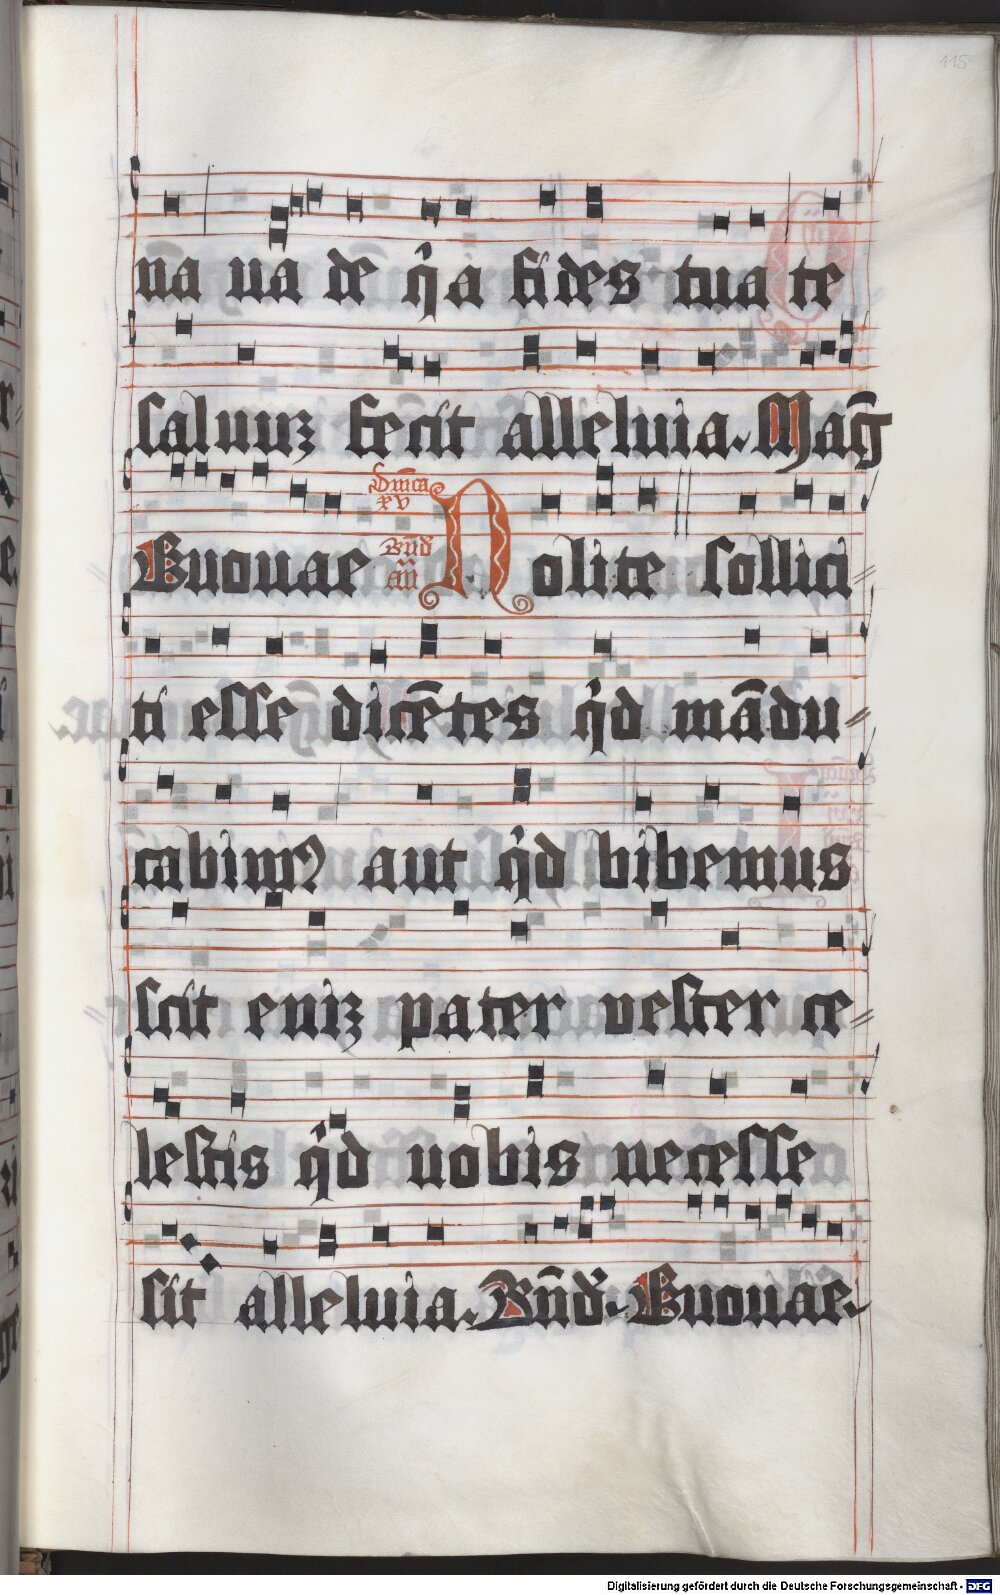 115
na ua de q̉a fides tua te
saluuꝫ fecit alleluia. Mag̅
Dn̅ica
xv
Euouae Bn̅d Nolite sollici⸗
an̅
ti esse dice̅tes q̉d ma̅du⸗
cabimꝰ aut q̉d bibemus
scit eniꝫ pater vester ce⸗
lestis q̉d uobis necesse
sit alleluia. Bn̅d. Euouae.
Digitalisierung gefördert durch die Deutsche Forschungsgemeinschaft - DFG